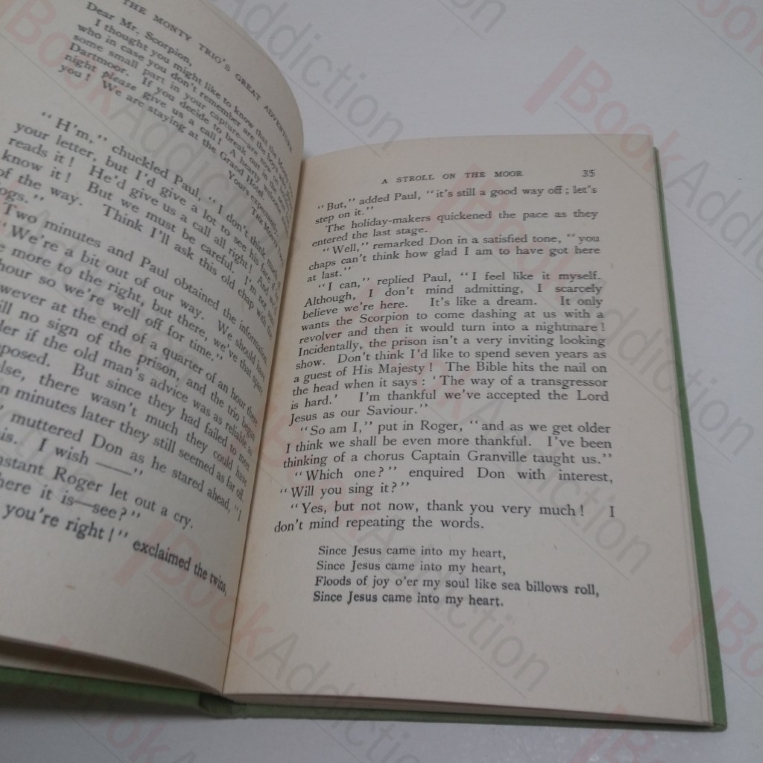 THE MONTY TRIO'S GREAT ADVENTURE
Dear Mr. Scorpion,
I thought you might like to know that the
who in case you don't remember are the boys who
some small part in your capture—are
Dartmoor. If you decide to break out
night please give us a call! A hearty
you! We are staying at the Grand Hotel
Yours
The Monty
"H'm," chuckled Paul, "I don't think much
your letter, but I'd give a lot to see his face
reads it! He'd give us a call all right! And
know it! But we must be careful. I'm not
of the way. Think I'll ask this old chap with the
ogs."
Two minutes and Paul obtained the information
"We're a bit out of our way. We should have
e more to the right, but there, we've that
hour so we're well off for time."
owever at the end of a quarter of an hour there
ill no sign of the prison, and the trio began
der if the old man's advice was as reliable
pposed. But since they had failed to meet
else, there wasn't much they could have
n minutes later they still seemed as far off.
" muttered Don as he stared ahead, "I
is. I wish ——"
nstant Roger let out a cry.
here it is—see?"
you're right!" exclaimed the twins,
A STROLL ON THE MOOR 35
"But," added Paul, "it's still a good way off; let's
step on it."
The holiday-makers quickened the pace as they
entered the last stage.
"Well," remarked Don in a satisfied tone, "you
chaps can't think how glad I am to have got here
at last."
"I can," replied Paul, "I feel like it myself.
Although, I don't mind admitting, I scarcely
believe we're here. It's like a dream. It only
wants the Scorpion to come dashing at us with a
revolver and then it would turn into a nightmare!
Incidentally, the prison isn't a very inviting looking
show. Don't think I'd like to spend seven years as
a guest of His Majesty! The Bible hits the nail on
the head when it says: 'The way of a transgressor
is hard.' I'm thankful we've accepted the Lord
Jesus as our Saviour."
"So am I," put in Roger, "and as we get older
I think we shall be even more thankful. I've been
thinking of a chorus Captain Granville taught us."
"Which one?" enquired Don with interest,
"Will you sing it?"
"Yes, but not now, thank you very much! I
don't mind repeating the words.
Since Jesus came into my heart,
Since Jesus came into my heart,
Floods of joy o'er my soul like sea billows roll,
Since Jesus came into my heart.
BookAddiction